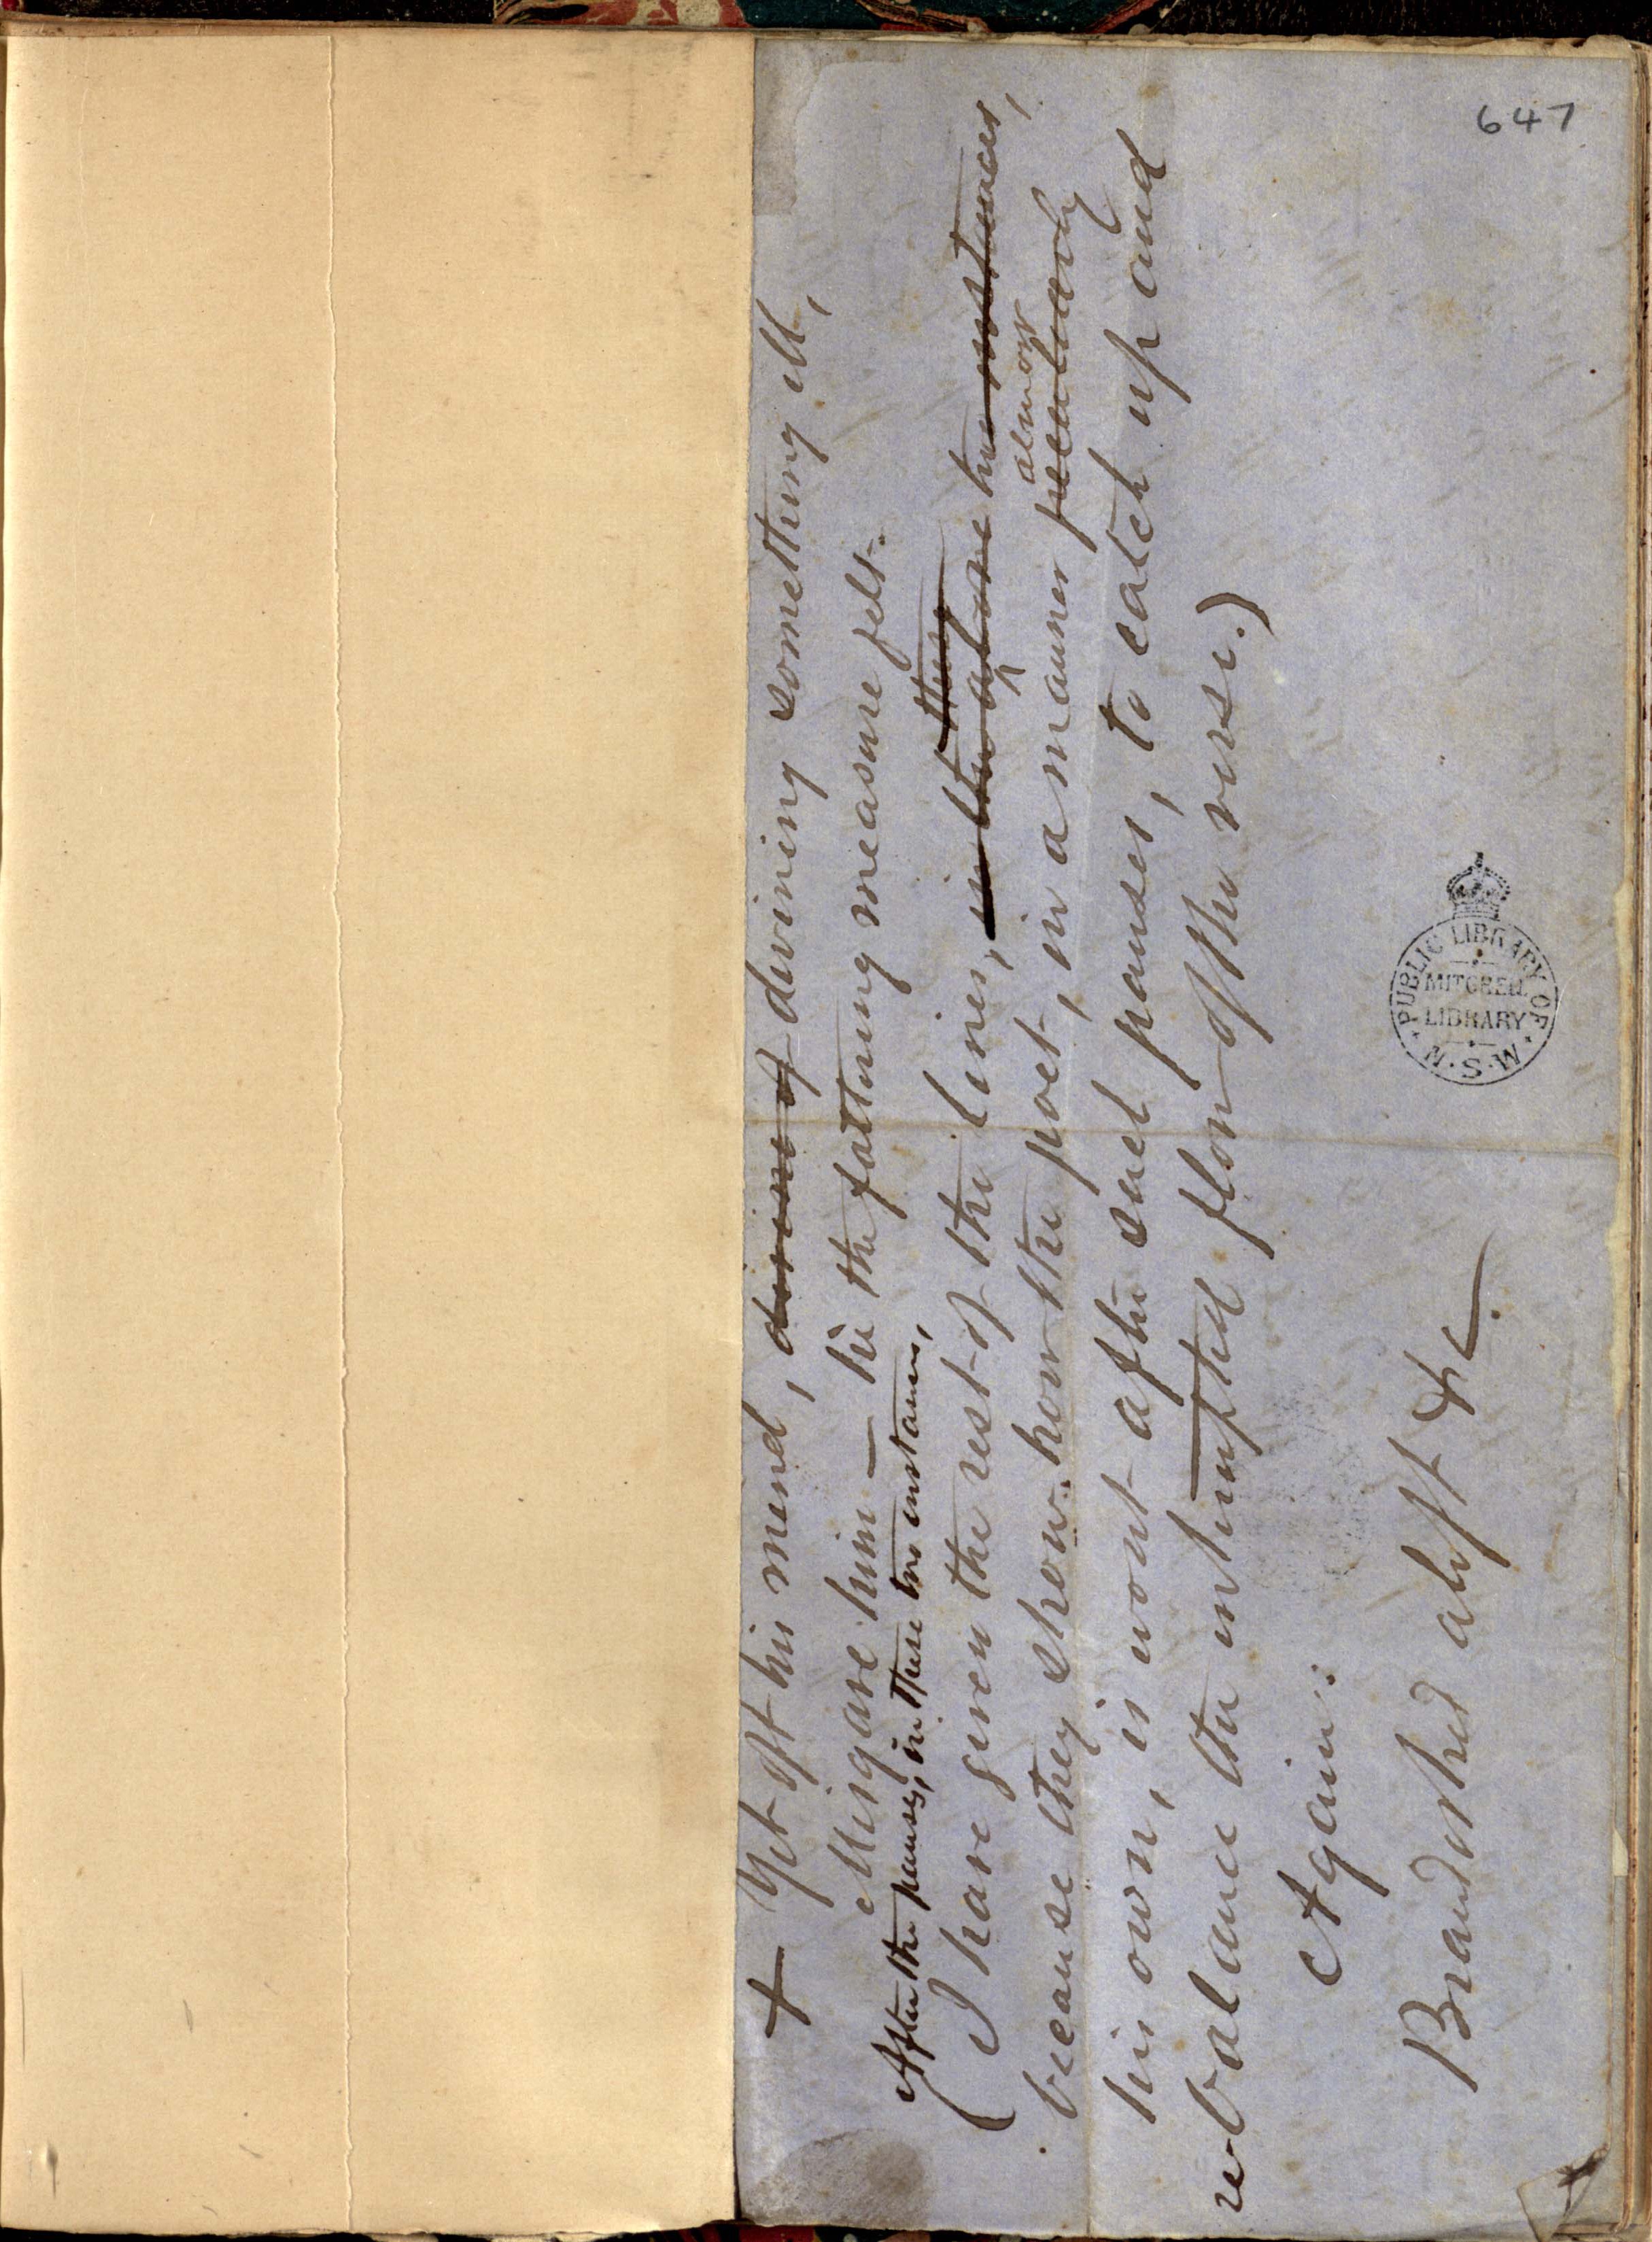 647
+ Yet oft his mind, divine of divining something ill,
Misgave him — he the faltering measure felt.
After the pauses, in these two instances,
(I have given the rest of the lines, in the above two instances,
these
almost
because they show how the poet, in a manner peculiarly
his own, is wont after such pauses, to catch up and
rebalance the interrupted flow of the verse.)
Again:
Brandished aloft &c.
PUBLIC LIBRARY OF N.S.W.
MITCHELL LIBRARY